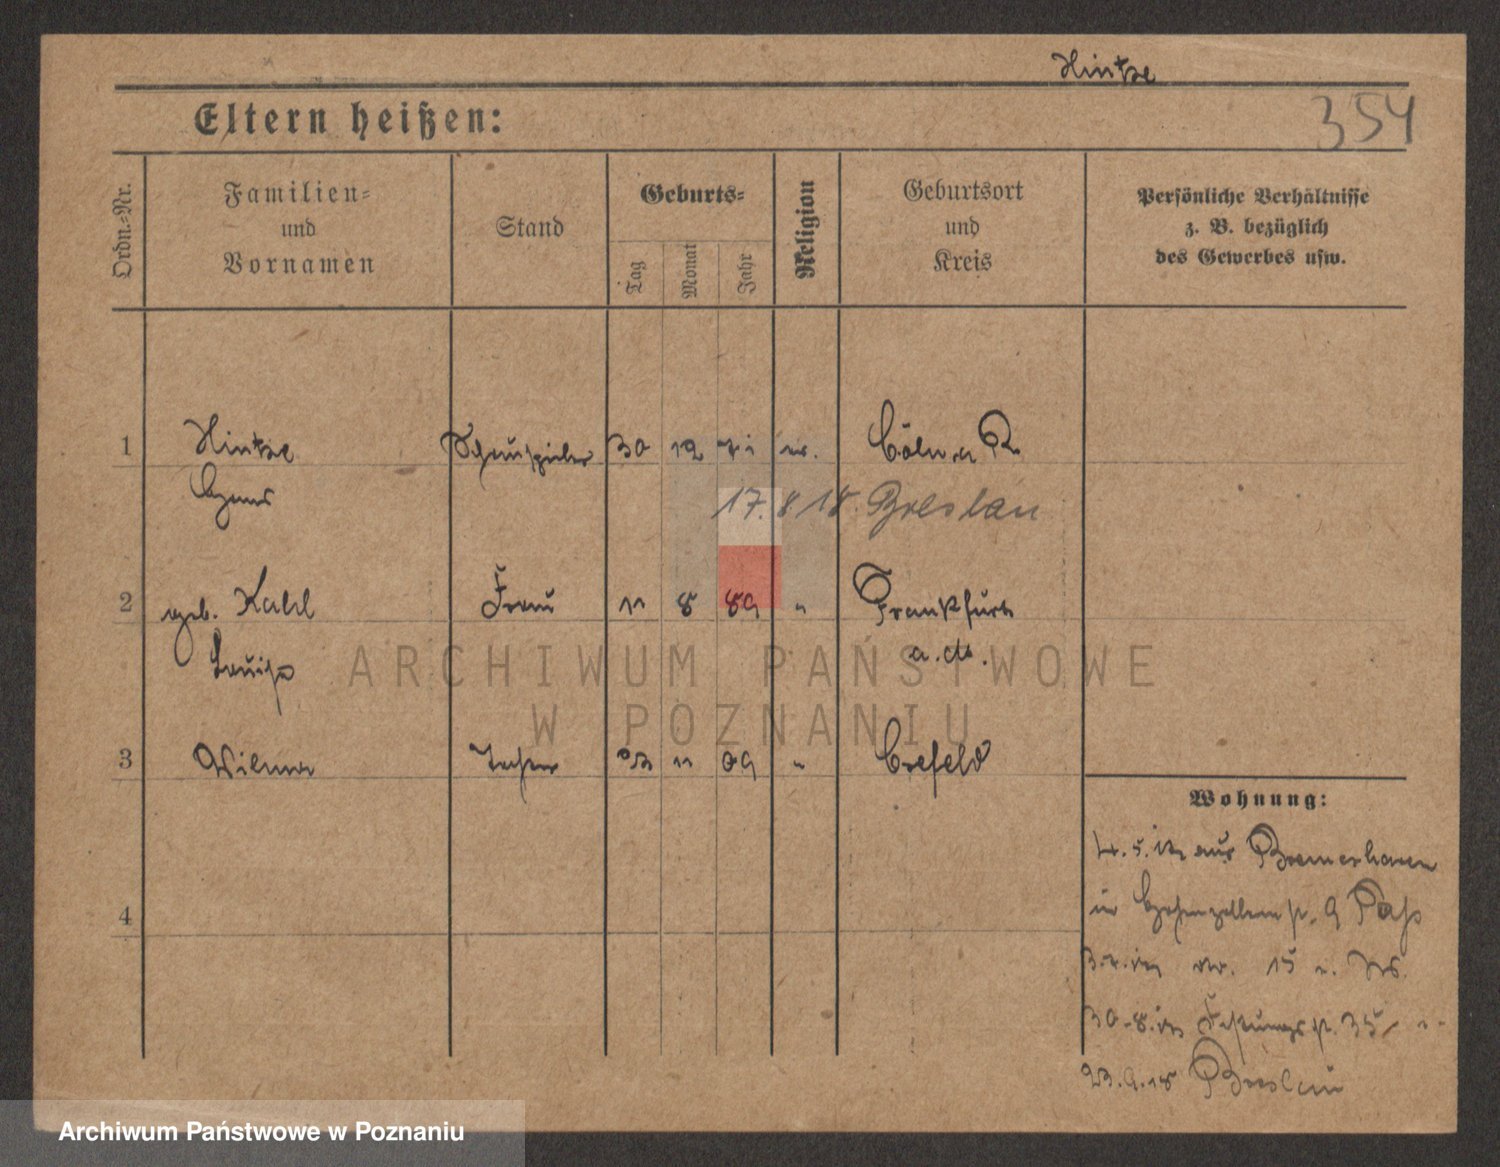 Hintze
354
Eltern heißen:
Ordn.-Nr.
Familien-
und
Vornamen
Stand
Geburts-
Tag
Monat
Jahr
Religion
Geburtsort
und
Kreis
Persönliche Verhältnisse
z. B. bezüglich
des Gewerbes usw.
1 Hintze Schauspieler 30 12 71 ev. Cöln a R
17. 8 18. Breslau
2 geb. Kahl Frau 11 8 89 " Frankfurt
Louise a. O.
3 Wilma Tochter 23 11 09 " Crefeld
4
Wohnung:
4. 5. aus Bremerhaven
in Hohenzollernstr. 9
15
30. 8. Festungsstr. 35
23. 9. 18 Breslau
ARCHIWUM PAŃSTWOWE
W POZNANIU
Archiwum Państwowe w Poznaniu